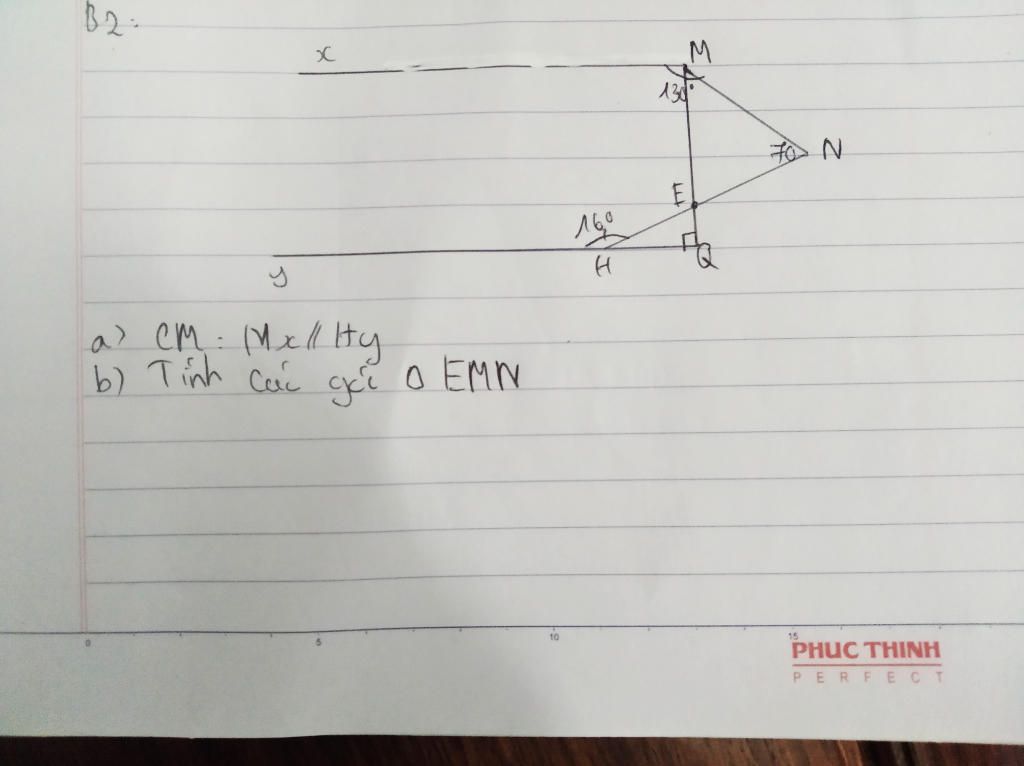 B2:
x
M
130°
70
N
E
160°
y
H
Q
a) CM: Mx // Hy
b) Tính các góc Δ EMN
0 5 10 15
PHUC THINH
PERFECT